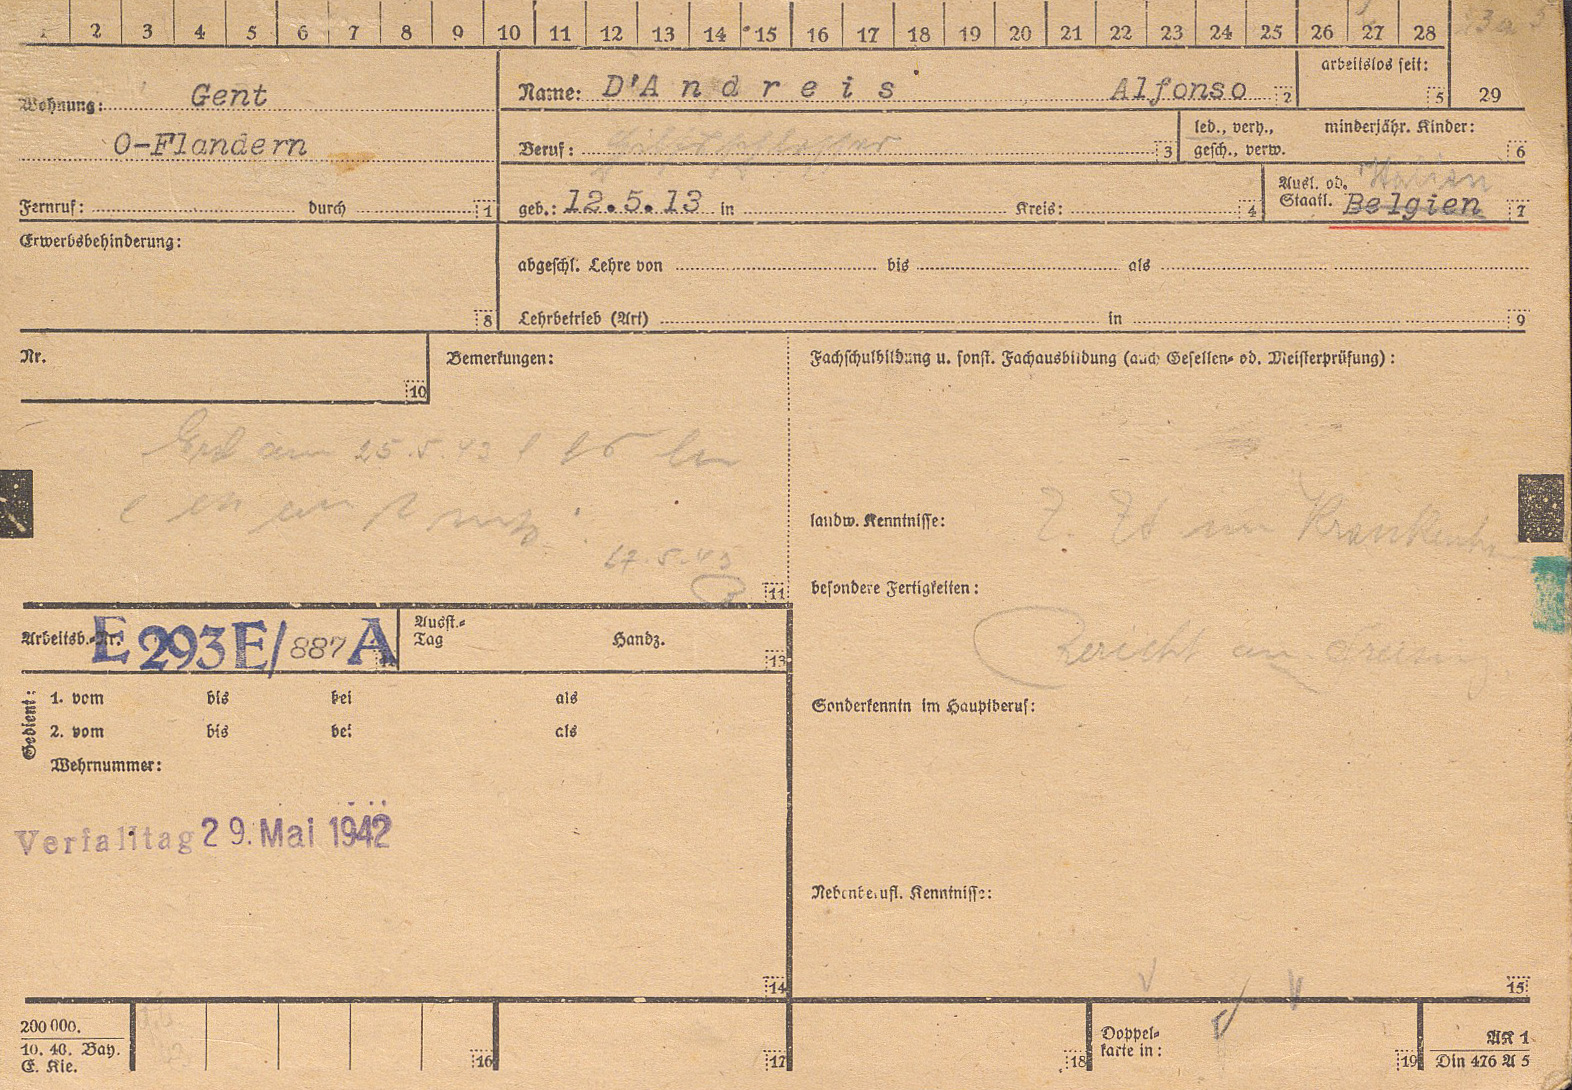 1 2 3 4 5 6 7 8 9 10 11 12 13 14 15 16 17 18 19 20 21 22 23 24 25 26 27 28
Wohnung: Gent
O-Flandern
Fernruf: durch 1
Name: D'Andreis Alfonso 2
arbeitslos seit: 5 29
Beruf: 3
led., verh., gesch., verw.
minderjähr. Kinder: 6
geb.: 12.5.13 in Kreis: 4
Ausl. od. Staatl. Italien Belgien 7
Erwerbsbehinderung: 8
abgeschl. Lehre von bis als
Lehrbetrieb (Art) in 9
Nr. 10
Bemerkungen:
am 25.5.43
17.5.43
11
Fachschulbildung u. sonst. Fachausbildung (auch Gesellen- od. Meisterprüfung):
landw. Kenntnisse:
Z. Zt im
besondere Fertigkeiten:
Bericht an
Sonderkenntn im Hauptberuf:
Nebenberufl. Kenntnisse:
15
Arbeitsb.-Nr. E 293E/887 A 12
Ausst.-Tag Handz. 13
Gedient: 1. vom bis bei als
2. vom bis bei als
Wehrnummer:
Verfalltag 29. Mai 1942
14
200 000.
10. 40. Bay.
E. Kie.
16 17 18
Doppel-
karte in: 19
AK 1
Din 476 A 5